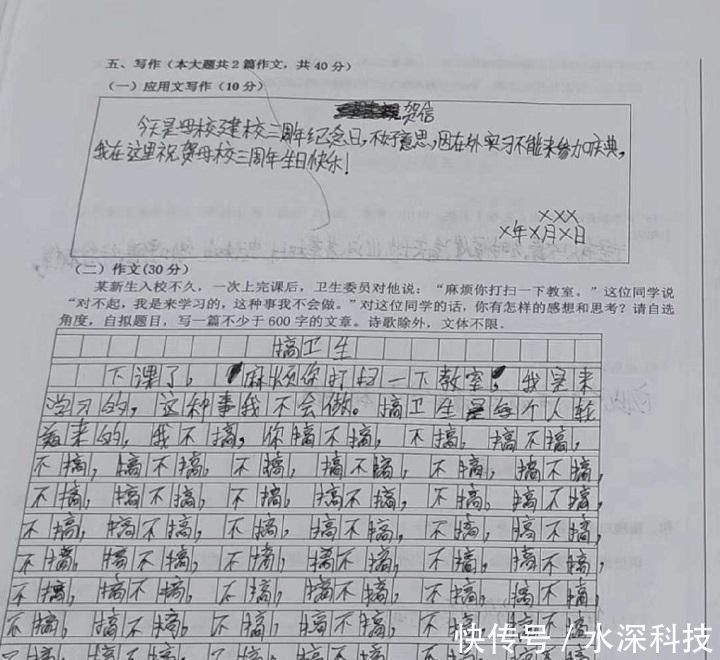 五、写作（本大题共2篇作文，共40分）
（一）应用文写作（10分）
贺信
今天是母校建校三周年纪念日，不好意思，因在外实习不能来参加庆典，
我在这里祝贺母校三周年生日快乐！
XXX
X年X月X日
（二）作文（30分）
某新生入校不久，一次上完课后，卫生委员对他说：“麻烦你打扫一下教室。”这位同学说
“对不起，我是来学习的，这种事我不会做。”对这位同学的话，你有怎样的感想和思考？请自选
角度，自拟题目，写一篇不少于600字的文章。诗歌除外，文体不限。
搞卫生
下课了。麻烦你打扫一下教室，我是来
学习的，这种事我不会做。搞卫生是每个人轮
着来的，我不搞，你搞不搞，不搞，搞不搞，
不搞，搞不搞，不搞，搞不搞，不搞，搞不搞，
不搞，搞不搞，不搞，搞不搞，不搞，搞不搞，
不搞，搞不搞，不搞，搞不搞，不搞，搞不搞，
不搞，搞不搞，不搞，搞不搞，不搞，搞不搞，
不搞，搞不搞，不搞，搞不搞，不搞，搞不搞，
不搞，搞不搞，不搞，搞不搞，不搞，搞不搞
快传号／水深科技